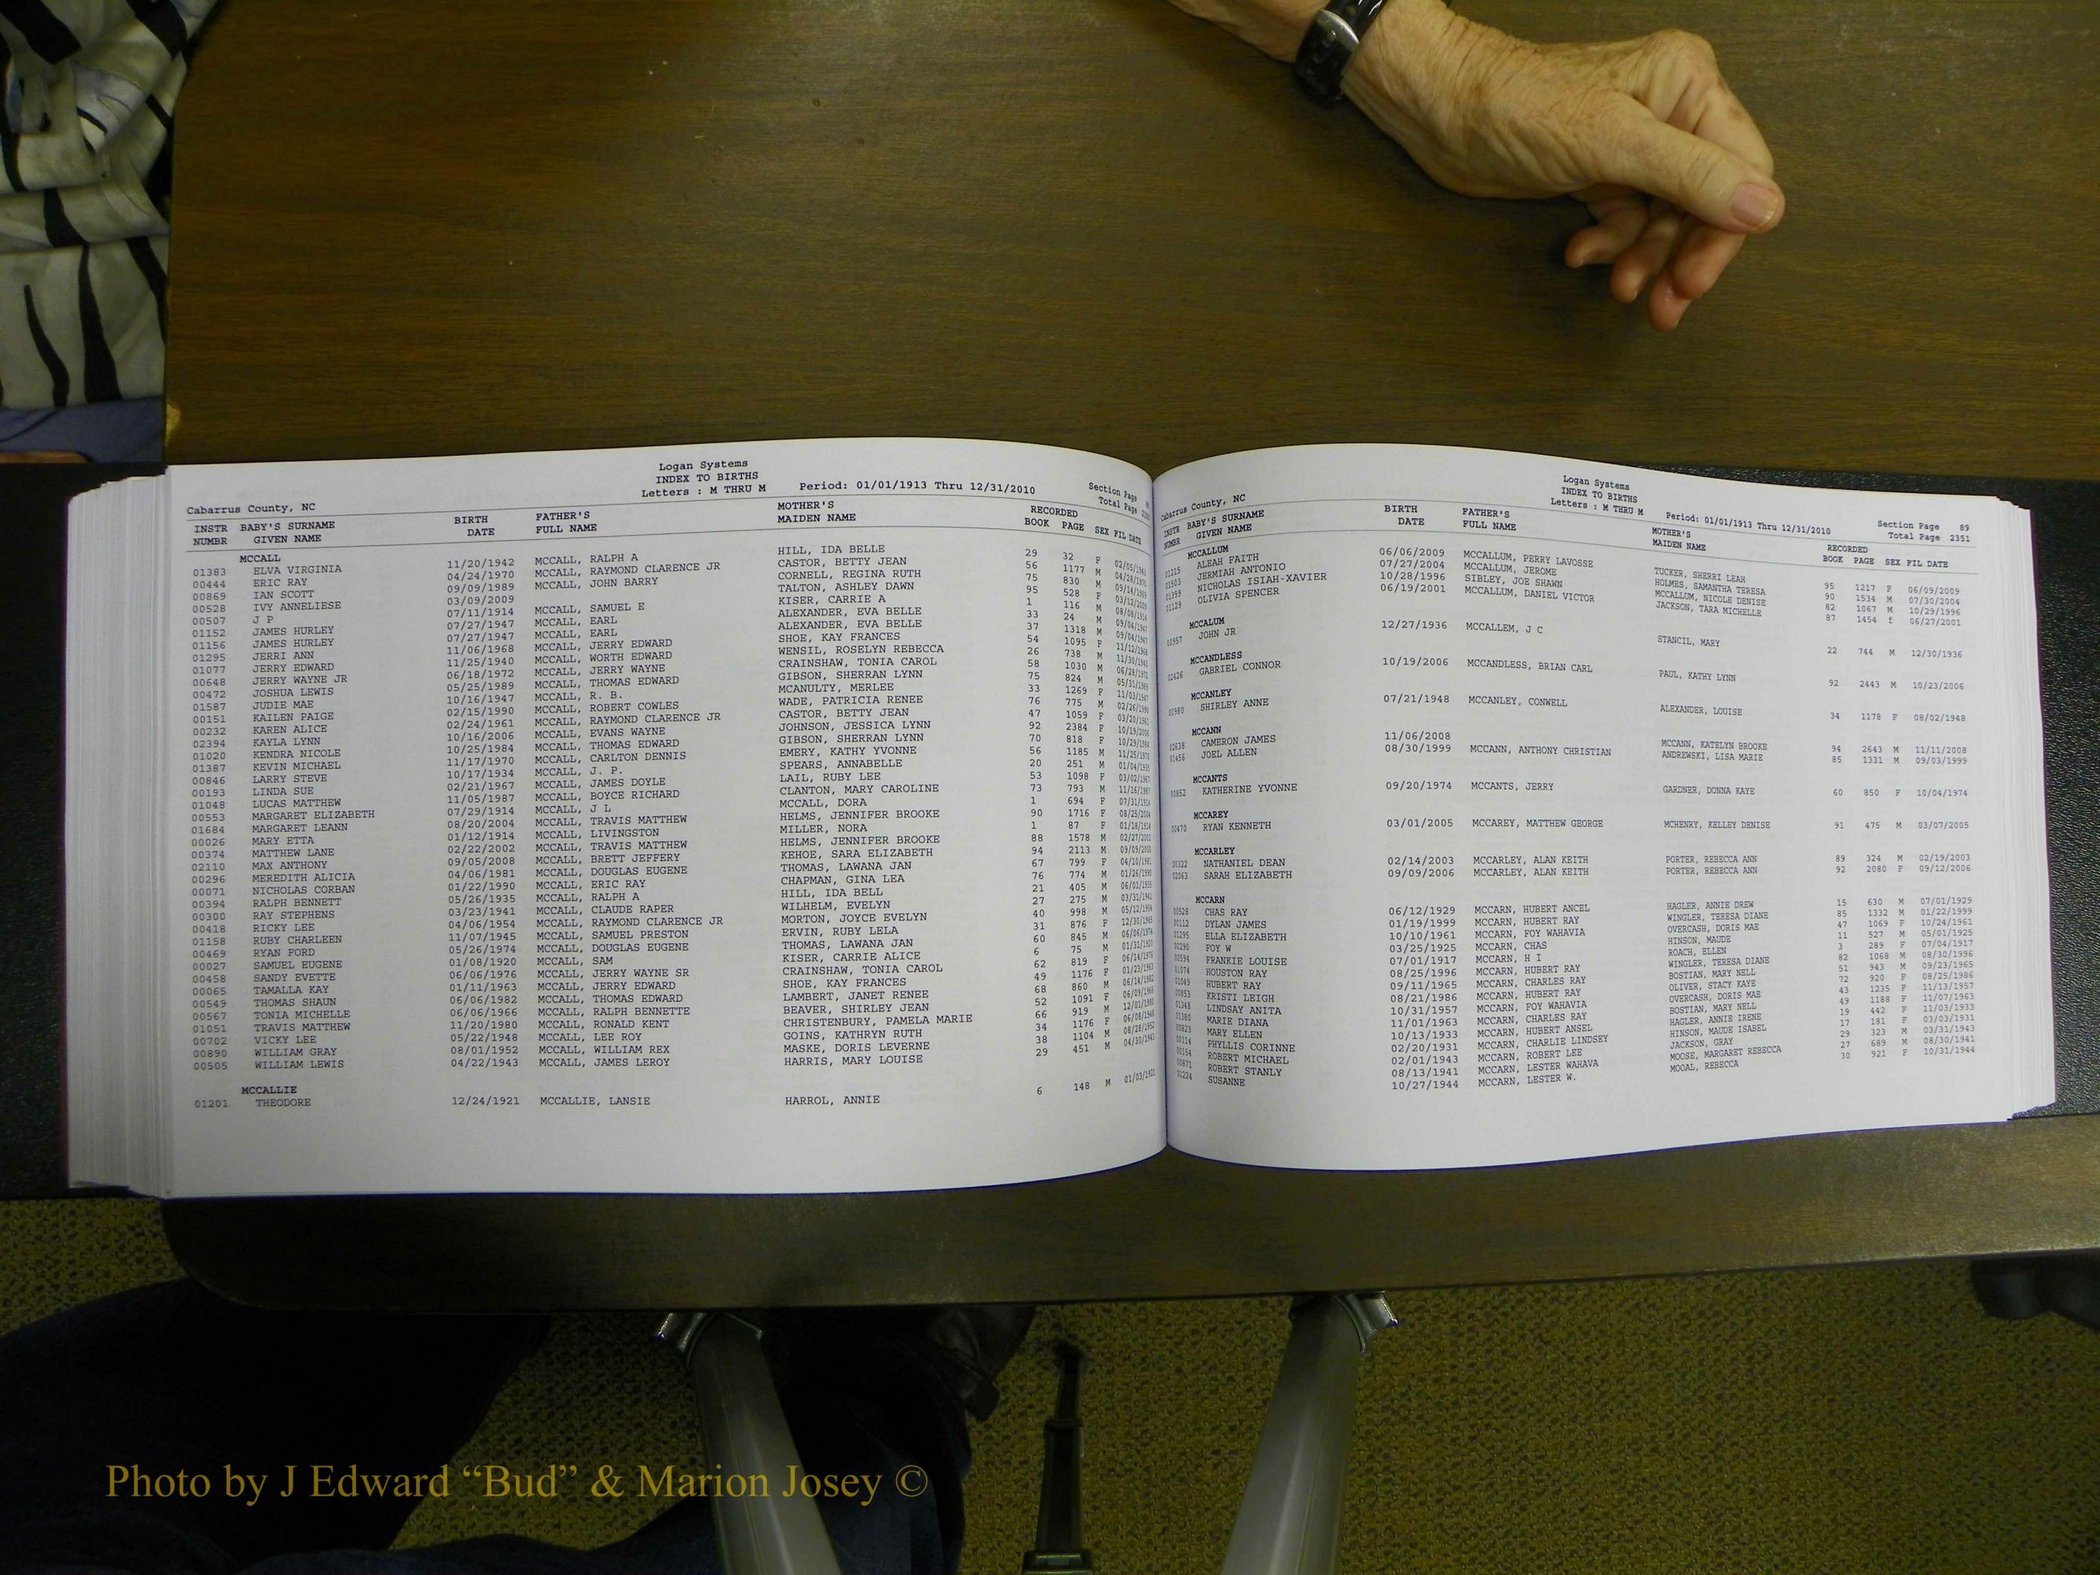 Logan Systems
INDEX TO BIRTHS
Cabarrus County, NC Letters : M THRU M Period: 01/01/1913 Thru 12/31/2010 Section Page
Total Page
INSTR BABY'S SURNAME BIRTH FATHER'S MOTHER'S RECORDED
NUMBR GIVEN NAME DATE FULL NAME MAIDEN NAME BOOK PAGE SEX FIL DATE
MCCALL
01383 ELVA VIRGINIA 11/20/1942 MCCALL, RALPH A HILL, IDA BELLE 29 32 F 02/05/1943
00444 ERIC RAY 04/24/1970 MCCALL, RAYMOND CLARENCE JR CASTOR, BETTY JEAN 56 1177 M 04/28/1970
00869 IAN SCOTT 09/09/1989 MCCALL, JOHN BARRY CORNELL, REGINA RUTH 75 830 M 09/14/1989
00528 IVY ANNELIESE 03/09/2009 TALTON, ASHLEY DAWN 95 528 F 03/12/2009
00507 J P 07/11/1914 MCCALL, SAMUEL E KISER, CARRIE A 1 116 M 08/08/1914
01152 JAMES HURLEY 07/27/1947 MCCALL, EARL ALEXANDER, EVA BELLE 33 24 M 09/04/1947
01156 JAMES HURLEY 07/27/1947 MCCALL, EARL ALEXANDER, EVA BELLE 37 1318 M 09/04/1947
01295 JERRI ANN 11/06/1968 MCCALL, JERRY EDWARD SHOE, KAY FRANCES 54 1095 F 11/12/1968
01077 JERRY EDWARD 11/25/1940 MCCALL, WORTH EDWARD WENSIL, ROSELYN REBECCA 26 738 M 11/30/1940
00648 JERRY WAYNE JR 06/18/1972 MCCALL, JERRY WAYNE CRAINSHAW, TONIA CAROL 58 1030 M 06/28/1972
00472 JOSHUA LEWIS 05/25/1989 MCCALL, THOMAS EDWARD GIBSON, SHERRAN LYNN 75 824 M 05/31/1989
01587 JUDIE MAE 10/16/1947 MCCALL, R. B. MCANULTY, MERLEE 33 1269 F 11/03/1947
00151 KAILEN PAIGE 02/15/1990 MCCALL, ROBERT COWLES WADE, PATRICIA RENEE 76 775 M 02/26/1990
00232 KAREN ALICE 02/24/1961 MCCALL, RAYMOND CLARENCE JR CASTOR, BETTY JEAN 47 1059 F 03/20/1961
02394 KAYLA LYNN 10/16/2006 MCCALL, EVANS WAYNE JOHNSON, JESSICA LYNN 92 2384 F 10/19/2006
01020 KENDRA NICOLE 10/25/1984 MCCALL, THOMAS EDWARD GIBSON, SHERRAN LYNN 70 818 F 10/29/1984
01387 KEVIN MICHAEL 11/17/1970 MCCALL, CARLTON DENNIS EMERY, KATHY YVONNE 56 1185 M 11/25/1970
00846 LARRY STEVE 10/17/1934 MCCALL, J. P. SPEARS, ANNABELLE 20 251 M 01/04/1935
00193 LINDA SUE 02/21/1967 MCCALL, JAMES DOYLE LAIL, RUBY LEE 53 1098 F 03/02/1967
01048 LUCAS MATTHEW 11/05/1987 MCCALL, BOYCE RICHARD CLANTON, MARY CAROLINE 73 793 M 11/16/1987
00553 MARGARET ELIZABETH 07/29/1914 MCCALL, J L MCCALL, DORA 1 694 F 07/31/1914
01684 MARGARET LEANN 08/20/2004 MCCALL, TRAVIS MATTHEW HELMS, JENNIFER BROOKE 90 1716 F 08/25/2004
00026 MARY ETTA 01/12/1914 MCCALL, LIVINGSTON MILLER, NORA 1 87 F 01/18/1914
00374 MATTHEW LANE 02/22/2002 MCCALL, TRAVIS MATTHEW HELMS, JENNIFER BROOKE 88 1578 M 02/27/2002
02110 MAX ANTHONY 09/05/2008 MCCALL, BRETT JEFFERY KEHOE, SARA ELIZABETH 94 2113 M 09/09/2008
00296 MEREDITH ALICIA 04/06/1981 MCCALL, DOUGLAS EUGENE THOMAS, LAWANA JAN 67 799 F 04/10/1981
00071 NICHOLAS CORBAN 01/22/1990 MCCALL, ERIC RAY CHAPMAN, GINA LEA 76 774 M 01/26/1990
00394 RALPH BENNETT 05/26/1935 MCCALL, RALPH A HILL, IDA BELL 21 405 M 06/01/1935
00300 RAY STEPHENS 03/23/1941 MCCALL, CLAUDE RAPER WILHELM, EVELYN 27 275 M 03/31/1941
00418 RICKY LEE 04/06/1954 MCCALL, RAYMOND CLARENCE JR MORTON, JOYCE EVELYN 40 998 M 05/12/1954
01158 RUBY CHARLEEN 11/07/1945 MCCALL, SAMUEL PRESTON ERVIN, RUBY LELA 31 876 F 12/30/1945
00469 RYAN FORD 05/26/1974 MCCALL, DOUGLAS EUGENE THOMAS, LAWANA JAN 60 845 M 06/06/1974
00027 SAMUEL EUGENE 01/08/1920 MCCALL, SAM KISER, CARRIE ALICE 6 75 M 01/31/1920
00458 SANDY EVETTE 06/06/1976 MCCALL, JERRY WAYNE SR CRAINSHAW, TONIA CAROL 62 819 F 06/14/1976
00065 TAMALLA KAY 01/11/1963 MCCALL, JERRY EDWARD SHOE, KAY FRANCES 49 1176 F 01/23/1963
00549 THOMAS SHAUN 06/06/1982 MCCALL, THOMAS EDWARD LAMBERT, JANET RENEE 68 860 M 06/14/1982
00567 TONIA MICHELLE 06/06/1966 MCCALL, RALPH BENNETTE BEAVER, SHIRLEY JEAN 52 1091 F 06/09/1966
01051 TRAVIS MATTHEW 11/20/1980 MCCALL, RONALD KENT CHRISTENBURY, PAMELA MARIE 66 919 M 12/01/1980
00702 VICKY LEE 05/22/1948 MCCALL, LEE ROY GOINS, KATHRYN RUTH 34 1176 F 06/08/1948
00890 WILLIAM GRAY 08/01/1952 MCCALL, WILLIAM REX MASKE, DORIS LEVERNE 38 1104 M 08/28/1952
00505 WILLIAM LEWIS 04/22/1943 MCCALL, JAMES LEROY HARRIS, MARY LOUISE 29 451 M 04/30/1943
MCCALLIE
01201 THEODORE 12/24/1921 MCCALLIE, LANSIE HARROL, ANNIE 6 148 M 01/03/1922
Logan Systems
INDEX TO BIRTHS
Cabarrus County, NC Letters : M THRU M Period: 01/01/1913 Thru 12/31/2010 Section Page 89
Total Page 2351
INSTR BABY'S SURNAME BIRTH FATHER'S MOTHER'S RECORDED
NUMBR GIVEN NAME DATE FULL NAME MAIDEN NAME BOOK PAGE SEX FIL DATE
MCCALLUM
01215 ALEAH FAITH 06/06/2009 MCCALLUM, PERRY LAVOSSE TUCKER, SHERRI LEAH 95 1217 F 06/09/2009
01503 JERMIAH ANTONIO 07/27/2004 MCCALLUM, JEROME HOLMES, SAMANTHA TERESA 90 1534 M 07/30/2004
01399 NICHOLAS ISIAH-XAVIER 10/28/1996 SIBLEY, JOE SHAWN MCCALLUM, NICOLE DENISE 82 1067 M 10/29/1996
01129 OLIVIA SPENCER 06/19/2001 MCCALLUM, DANIEL VICTOR JACKSON, TARA MICHELLE 87 1454 f 06/27/2001
MCCALUM
00957 JOHN JR 12/27/1936 MCCALLEM, J C STANCIL, MARY 22 744 M 12/30/1936
MCCANDLESS
02426 GABRIEL CONNOR 10/19/2006 MCCANDLESS, BRIAN CARL PAUL, KATHY LYNN 92 2443 M 10/23/2006
MCCANLEY
00980 SHIRLEY ANNE 07/21/1948 MCCANLEY, CONWELL ALEXANDER, LOUISE 34 1178 F 08/02/1948
MCCANN
02638 CAMERON JAMES 11/06/2008 MCCANN, KATELYN BROOKE 94 2643 M 11/11/2008
01456 JOEL ALLEN 08/30/1999 MCCANN, ANTHONY CHRISTIAN ANDREWSKI, LISA MARIE 85 1331 M 09/03/1999
MCCANTS
00852 KATHERINE YVONNE 09/20/1974 MCCANTS, JERRY GARDNER, DONNA KAYE 60 850 F 10/04/1974
MCCAREY
00470 RYAN KENNETH 03/01/2005 MCCAREY, MATTHEW GEORGE MCHENRY, KELLEY DENISE 91 475 M 03/07/2005
MCCARLEY
00322 NATHANIEL DEAN 02/14/2003 MCCARLEY, ALAN KEITH PORTER, REBECCA ANN 89 324 M 02/19/2003
02063 SARAH ELIZABETH 09/09/2006 MCCARLEY, ALAN KEITH PORTER, REBECCA ANN 92 2080 F 09/12/2006
MCCARN
00528 CHAS RAY 06/12/1929 MCCARN, HUBERT ANCEL HAGLER, ANNIE DREW 15 630 M 07/01/1929
00112 DYLAN JAMES 01/19/1999 MCCARN, HUBERT RAY WINGLER, TERESA DIANE 85 1332 M 01/22/1999
01295 ELLA ELIZABETH 10/10/1961 MCCARN, FOY WAHAVIA OVERCASH, DORIS MAE 47 1069 F 10/24/1961
00290 FOY W 03/25/1925 MCCARN, CHAS HINSON, MAUDE 11 527 M 05/01/1925
00594 FRANKIE LOUISE 07/01/1917 MCCARN, H I ROACH, ELLEN 3 289 F 07/04/1917
01074 HOUSTON RAY 08/25/1996 MCCARN, HUBERT RAY WINGLER, TERESA DIANE 82 1068 M 08/30/1996
01049 HUBERT RAY 09/11/1965 MCCARN, CHARLES RAY BOSTIAN, MARY NELL 51 943 M 09/23/1965
00853 KRISTI LEIGH 08/21/1986 MCCARN, HUBERT RAY OLIVER, STACY KAYE 72 920 F 08/25/1986
01348 LINDSAY ANITA 10/31/1957 MCCARN, FOY WAHAVIA OVERCASH, DORIS MAE 43 1235 F 11/13/1957
01380 MARIE DIANA 11/01/1963 MCCARN, CHARLES RAY BOSTIAN, MARY NELL 49 1188 F 11/07/1963
00823 MARY ELLEN 10/13/1933 MCCARN, HUBERT ANSEL HAGLER, ANNIE IRENE 19 442 F 11/03/1933
00114 PHYLLIS CORINNE 02/20/1931 MCCARN, CHARLIE LINDSEY HINSON, MAUDE ISABEL 17 181 F 03/03/1931
00154 ROBERT MICHAEL 02/01/1943 MCCARN, ROBERT LEE JACKSON, GRAY 29 323 M 03/31/1943
00871 ROBERT STANLY 08/13/1941 MCCARN, LESTER WAHAVA MOOSE, MARGARET REBECCA 27 689 M 08/30/1941
01224 SUSANNE 10/27/1944 MCCARN, LESTER W. MOOAL, REBECCA 30 921 F 10/31/1944
Photo by J Edward “Bud” & Marion Josey ©